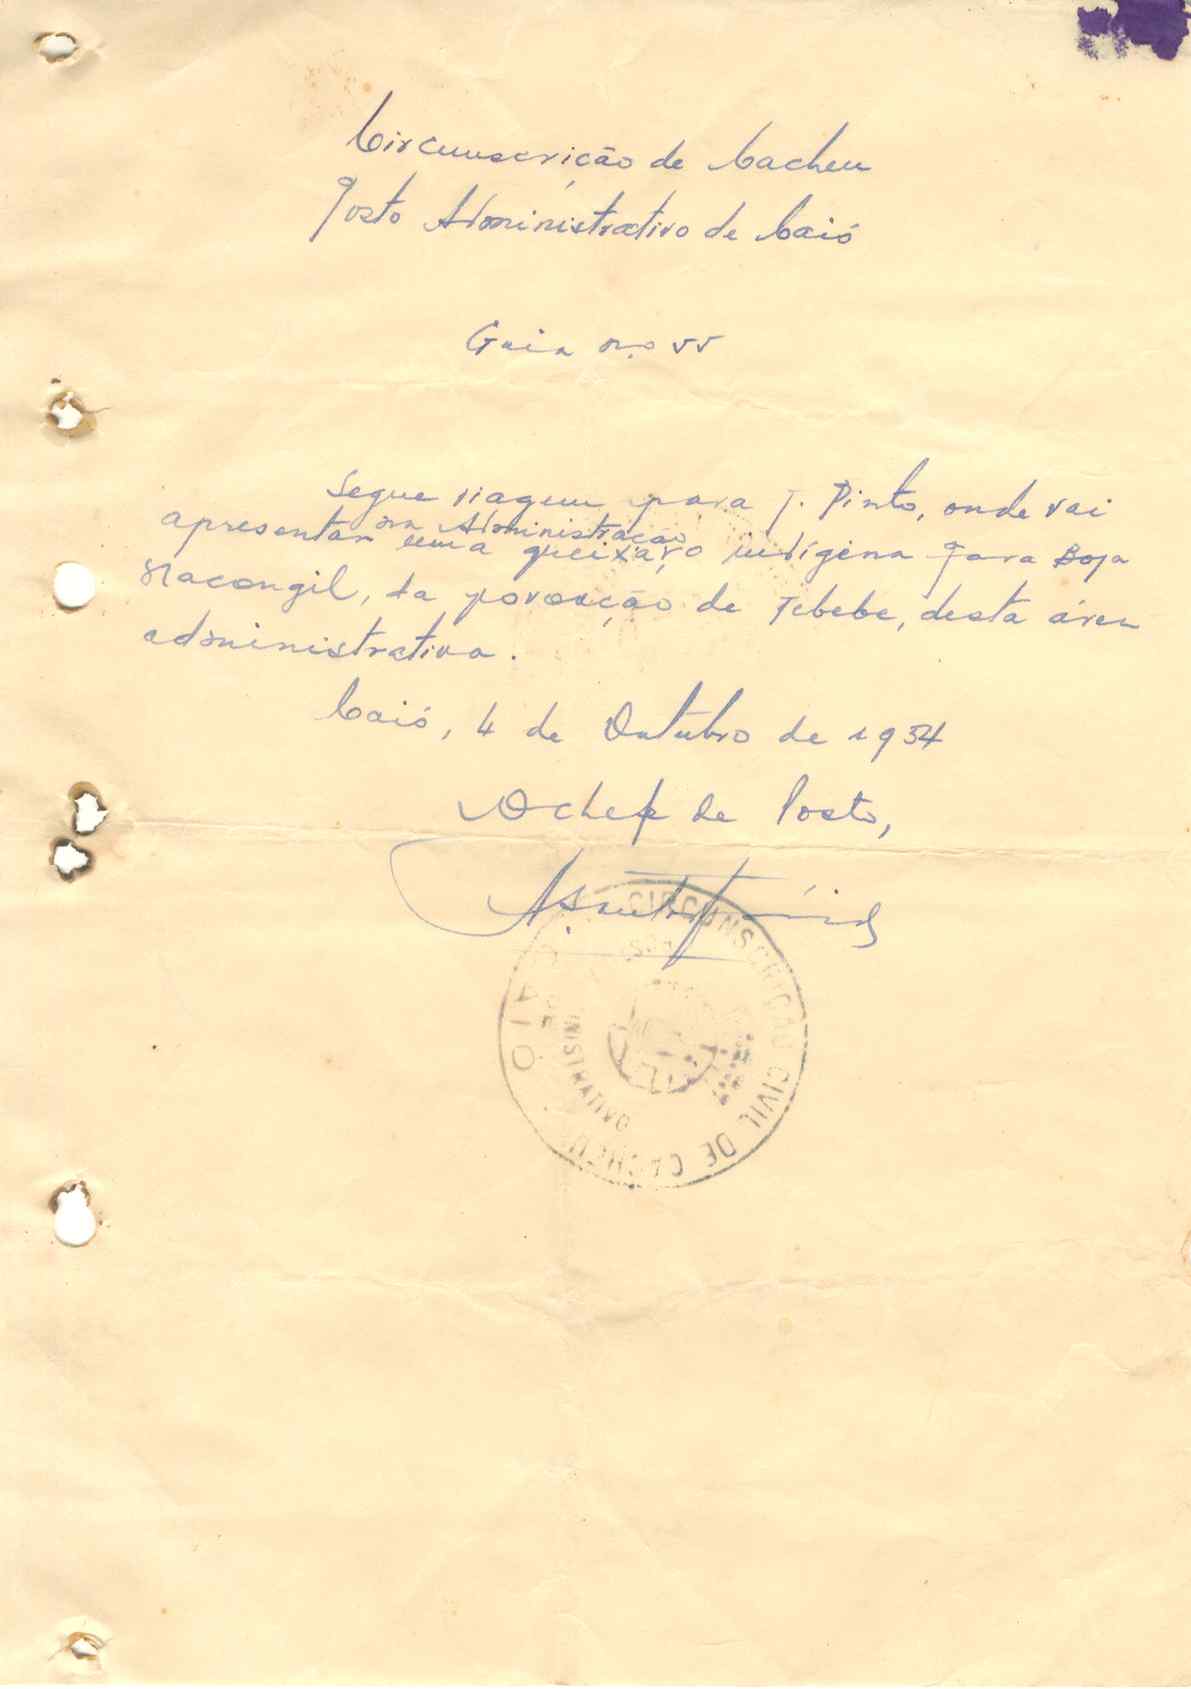 Circunscrição de Cacheu
Posto Administrativo de Caió
Guia n.o 55
Segue viagem para T. Pinto, onde vai
na Administração
apresentar uma queixa, o indígena Jara Boja
Nacongil, da povoação de Tebebe, desta área
administrativa.
Caió, 4 de Outubro de 1954
O chefe de Posto,
CIRCUNSCRIÇÃO CIVIL DE CACHEU
CAIÓ
ADMINISTRATIVO